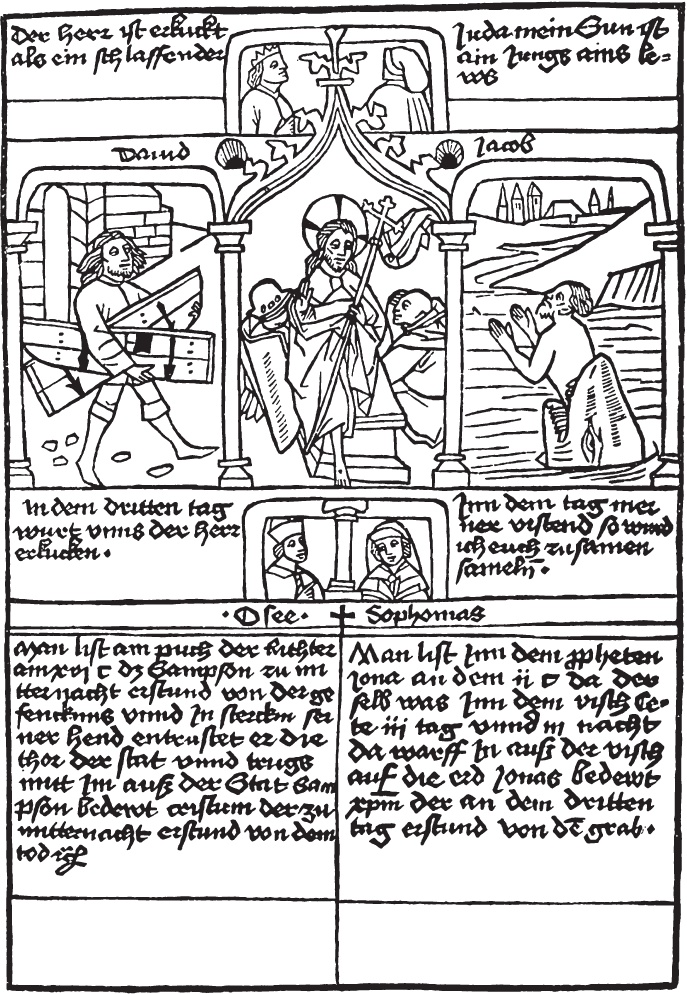 Der herr ist erkuckt
als ein schlaffender
Juda mein Sun ist
ain Jungs ains le=
ws
Dauid
Jacob
In dem dritten tag
wurt vnns der herr
erkucken.
Inn dem tag mei
ner vistend so wurd
ich euch zusamen
sameln.
Osee.
Sophonias
Man list am puch der Richter
am xvj c dz Sampson zu mi
tternacht erstund von der ge
fencknus vnnd In stercken sei
ner hend entrustet er die
thor der stat vnnd trugs
mitt Im auß der Stat Sam
pson bedewt cristum der zu
mitternacht erstund von dem
tod
Man list Inn dem ppheten
Jona an dem ii c da der
selb was Inn dem visch
te iii tag vnnd iii nacht
da warff In auß der visch
auf die erd Jonas bedewt
xpm der an dem dritten
tag erstund von dē grab.